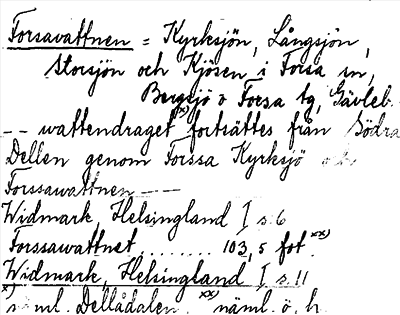 Forsavattnen = Kyrksjön, Långsjön,
Storsjön och Kjösen i Forsa sn,
Bergsjö o Forsa tg, Gävleb.
-- wattendraget x) fortsättes från Södra
Dellen genom Forssa Kyrksjö
Forssawattnen ---
Widmark, Helsingland I s. 6
Forssawattnet ........ 103,5 fot. xx)
Widmark, Helsingland I s. 11
x) näml. Dellådalen. xx) näml. ö. h.